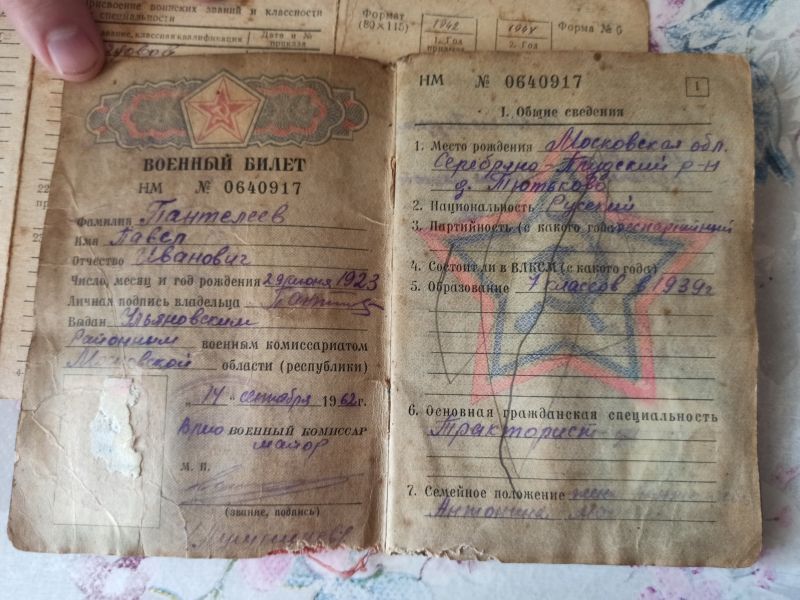 присвоение воинских званий и классности
специальности
звание, класснаяквалификация Дата и №
приказа
Формат
(80×115)
1942
1. Год
1944
2. Год
Форма № 6
ВОЕННЫЙ БИЛЕТ
НМ № 0640917
Фамилия Пантелеев
Имя Павел
Отчество Иванович
Число, месяц и год рождения 29 июня 1923
Личная подпись владельца
Выдан Ульяновским
Районным военным комиссариатом
Московской области (республики)
„14" сентября 1962 г.
Врио ВОЕННЫЙ КОМИССАР
майор
М. П.
(звание, подпись)
НМ № 0640917
1
I. Общие сведения
1. Место рождения Московская обл.
Серебряно-Прудский р-н
д. Тютьково
2. Национальность Русский
3. Партийность (с какого года) беспартийный
4. Состоит ли в ВЛКСМ (с какого года)
5. Образование 7 классов в 1939г
6. Основная гражданская специальность
Тракторист
7. Семейное положение жена
Антонина